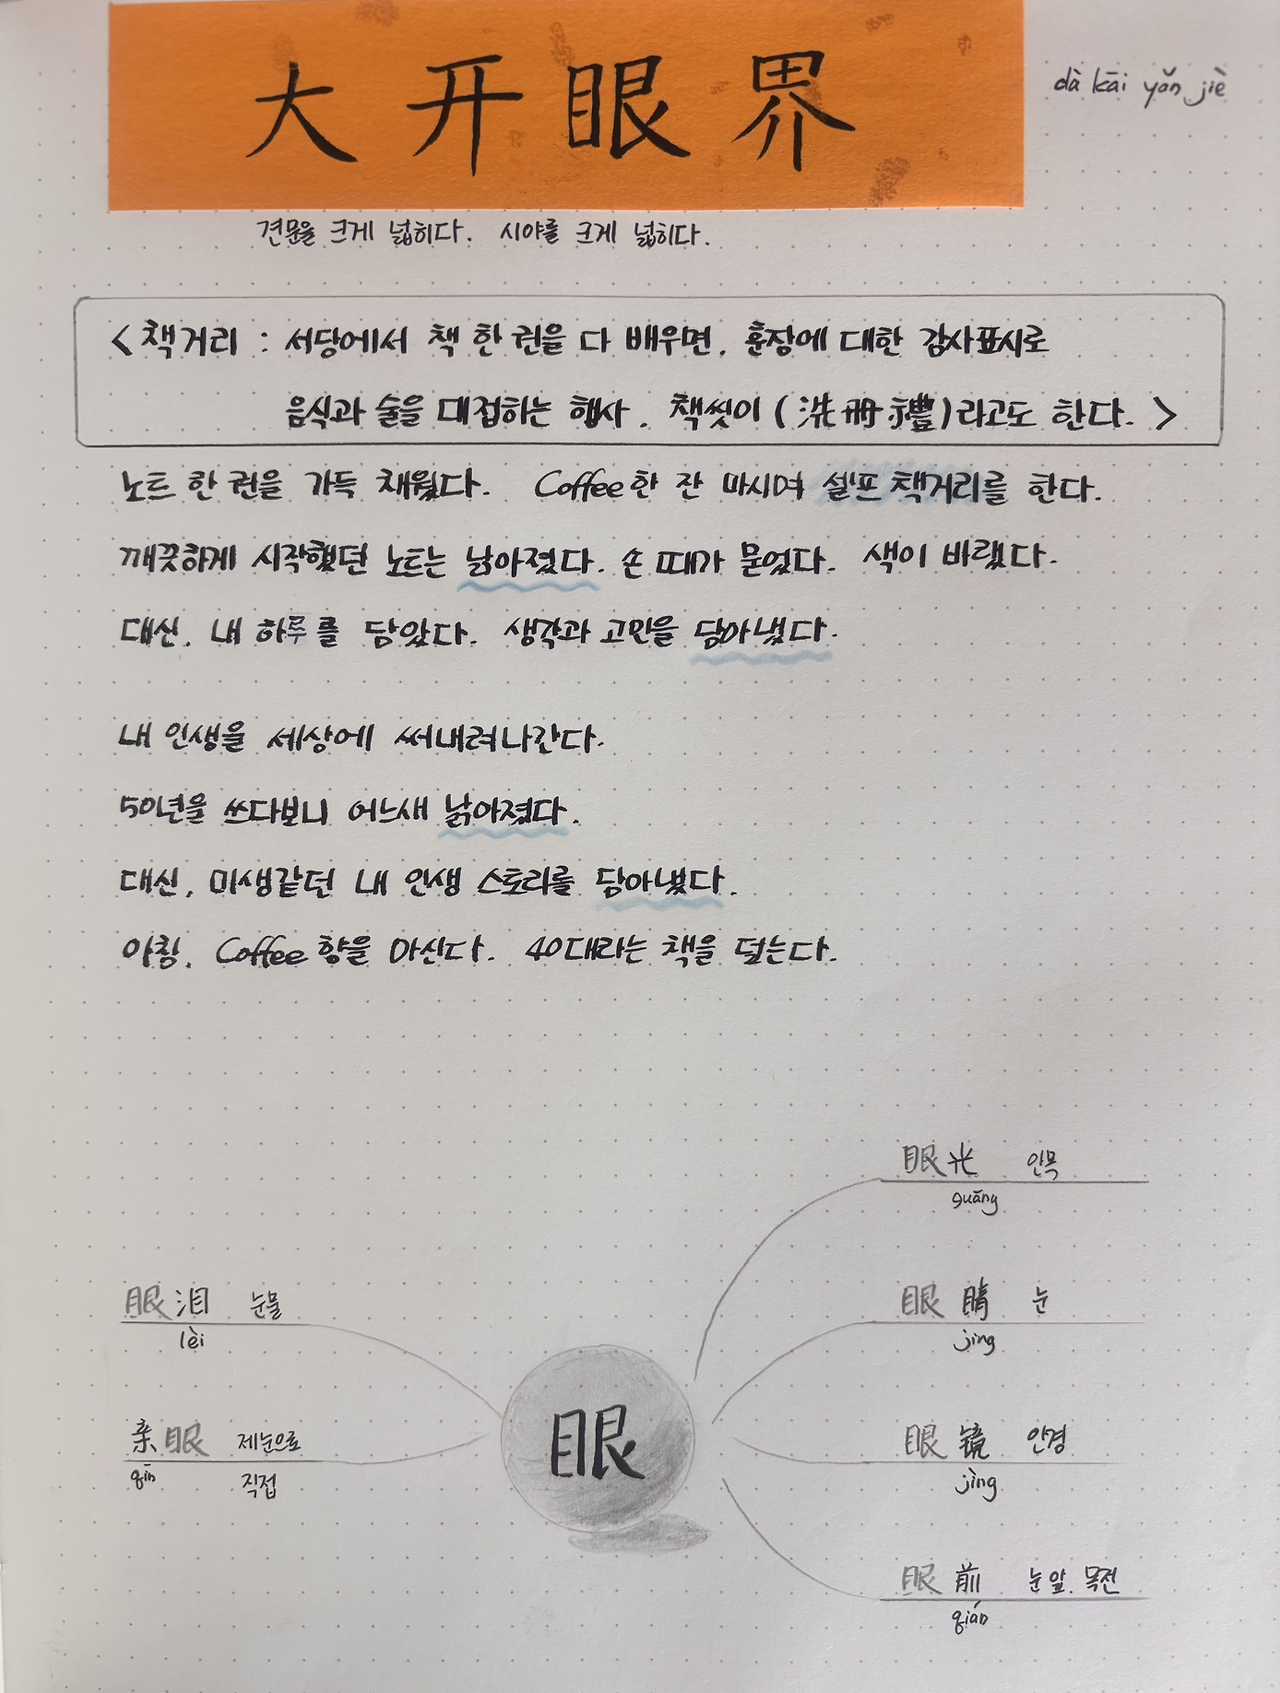 大开眼界
dà kāi yǎn jiè
견문을 크게 넓히다. 시야를 크게 넓히다.
<책거리 : 서당에서 책 한 권을 다 배우면, 훈장에 대한 감사표시로
음식과 술을 대접하는 행사. 책씻이 (洗冊禮)라고도 한다.>
노트 한 권을 가득 채웠다. Coffee 한 잔 마시며 셀프 책거리를 한다.
깨끗하게 시작했던 노트는 낡아졌다. 손 때가 묻었다. 색이 바랬다.
대신, 내 하루를 담았다. 생각과 고민을 담아냈다.
내 인생을 세상에 써내려나간다.
50년을 쓰다보니 어느새 낡아졌다.
대신, 미생같던 내 인생 스토리를 담아냈다.
아침, Coffee 향을 마신다. 40대라는 책을 덮는다.
眼光 안목
guāng
眼泪 눈물
lèi
眼睛 눈
jing
眼
亲眼 제눈으로
qīn 직접
眼镜 안경
jìng
眼前 눈앞. 목전
qián